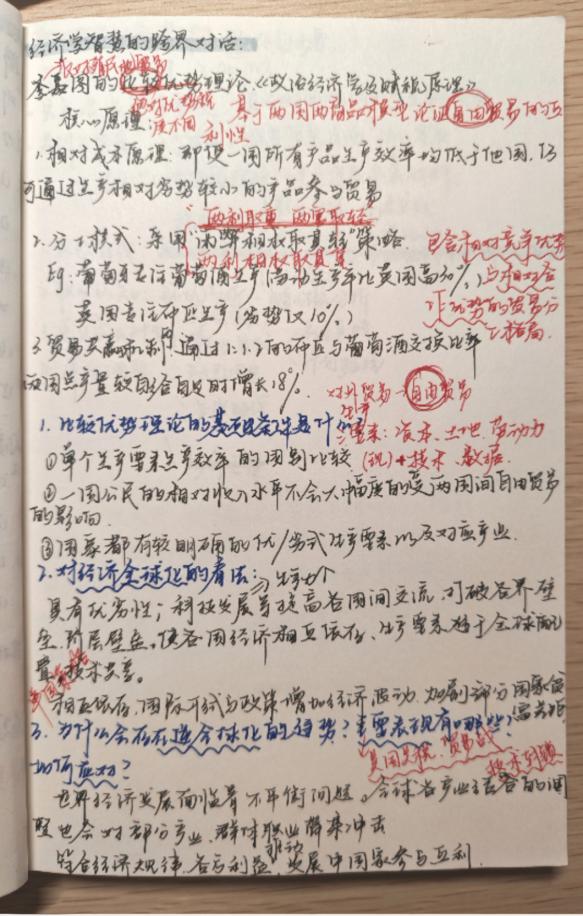 经济学智慧的跨界对话：
反对殖民地贸易
李嘉图的比较优势理论《政治经济学及赋税原理》
绝对优势 基于两国两商品模型论证自由贸易的互
核心原理： 利性
1.相对成本原理：即便一国所有产品生产效率均低于他国，仍
可通过生产相对劣势较小的产品参与贸易
两利取重 两害取轻
2.分工模式：采用"两弊相权取其轻"策略.
两利相权取其重
包含相对竞争优势
与相对合
作优势的贸易分
工格局.
Eg：葡萄牙专注葡萄酒生产（劳动生产率比英国高30%）
英国专注呢生产（劣势仅10%）
3.贸易共赢机制：通过1:1.2的呢与葡萄酒交换比率
两国总产量较自给自足时增长18%.
对外贸易→自由贸易
1.比较优势理论的基础条件是什么？
生产要素：资本、土地、劳动力
(现)+技术、数据.
①单个生产要素生产效率的国别比较
②一国公民的相对收入水平不会大幅度的受两国间自由贸易
的影响.
③国家都有较明确的优/劣式生产要素以及对应产业.
2.对经济全球化的看法：
具有优劣性；科技发展等提高各国间交流，打破各界壁
垒、阶层壁垒，使各国经济相互依存、生产要素趋于全球配
置、技术共享.
相互依存，国际形式与政策增加经济波动，加剧部分国家贫
富差距
3.为什么会存在逆全球化的趋势？主要表现有哪些？
美国关税、贸易战
技术封锁
如何应对？
世界经济发展面临着不平衡问题，全球各产业链各的调
整也会对部分产业、群体职业带来冲击
符合经济规律，各方利益，发展中国家参与互利.